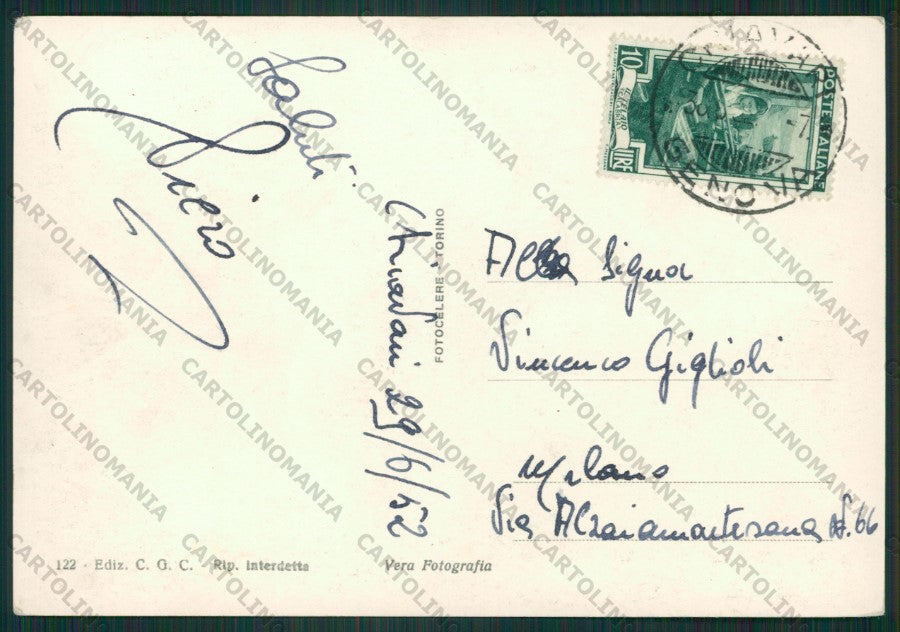 Saluti
Piero
Chiavari 29/6/52
FOTOCELERE - TORINO
10
LIRE
POSTE ITALIANE
CHIAVARI
GENOVA
Alla Sigra
Vincenco Giglioli
Milano
Via Alzaiamartesana N. 66
122 - Ediz. C. G. C. - Rip. Interdetta
Vera Fotografia
CARTOLINOMANIA